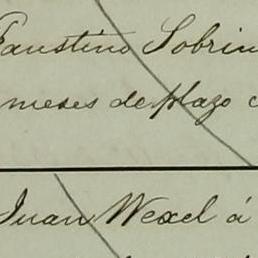 Faustino Sobrin
meses de plazo c
Juan Wexel á